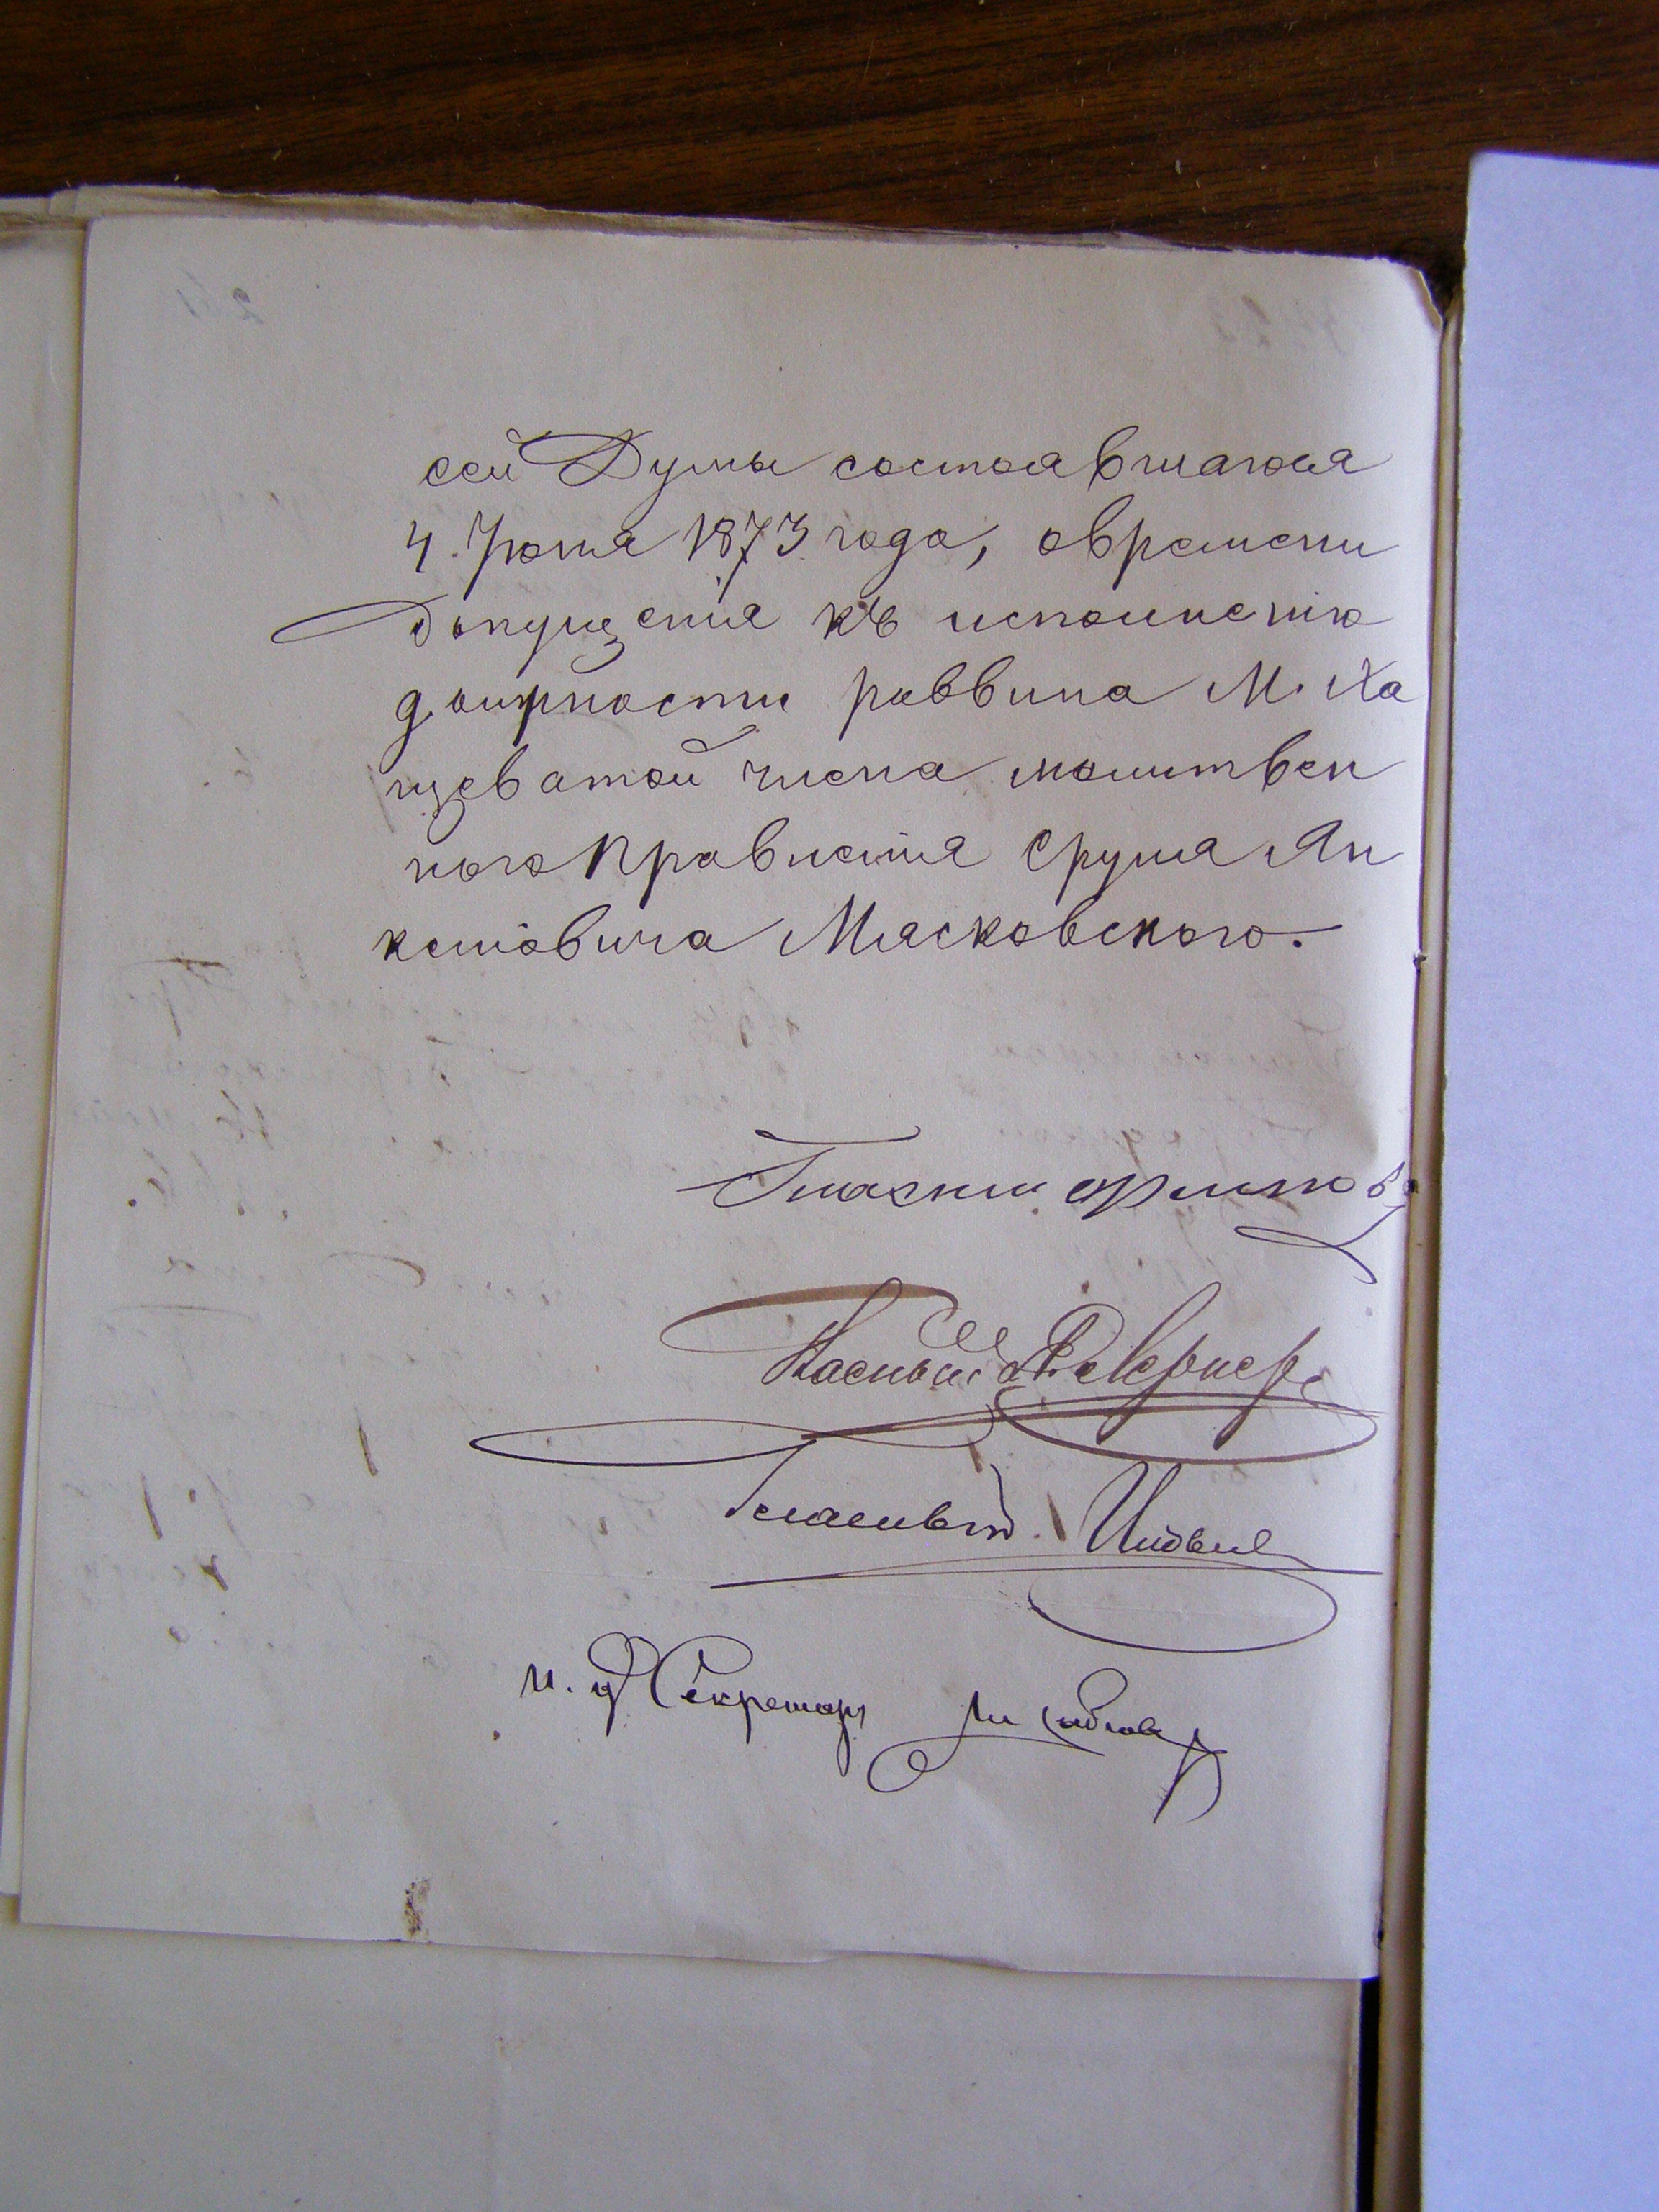 сей Думы состоявшагося
4. Июня 1873 года, овремени
допущенія къ исполненію
должности раввина М. Ха
щеватой члена молитвен
ного Правленія Сруля Ян
келіовича Мясковского.
Гласный
Гласный
Гласный
и. д. Секретаря